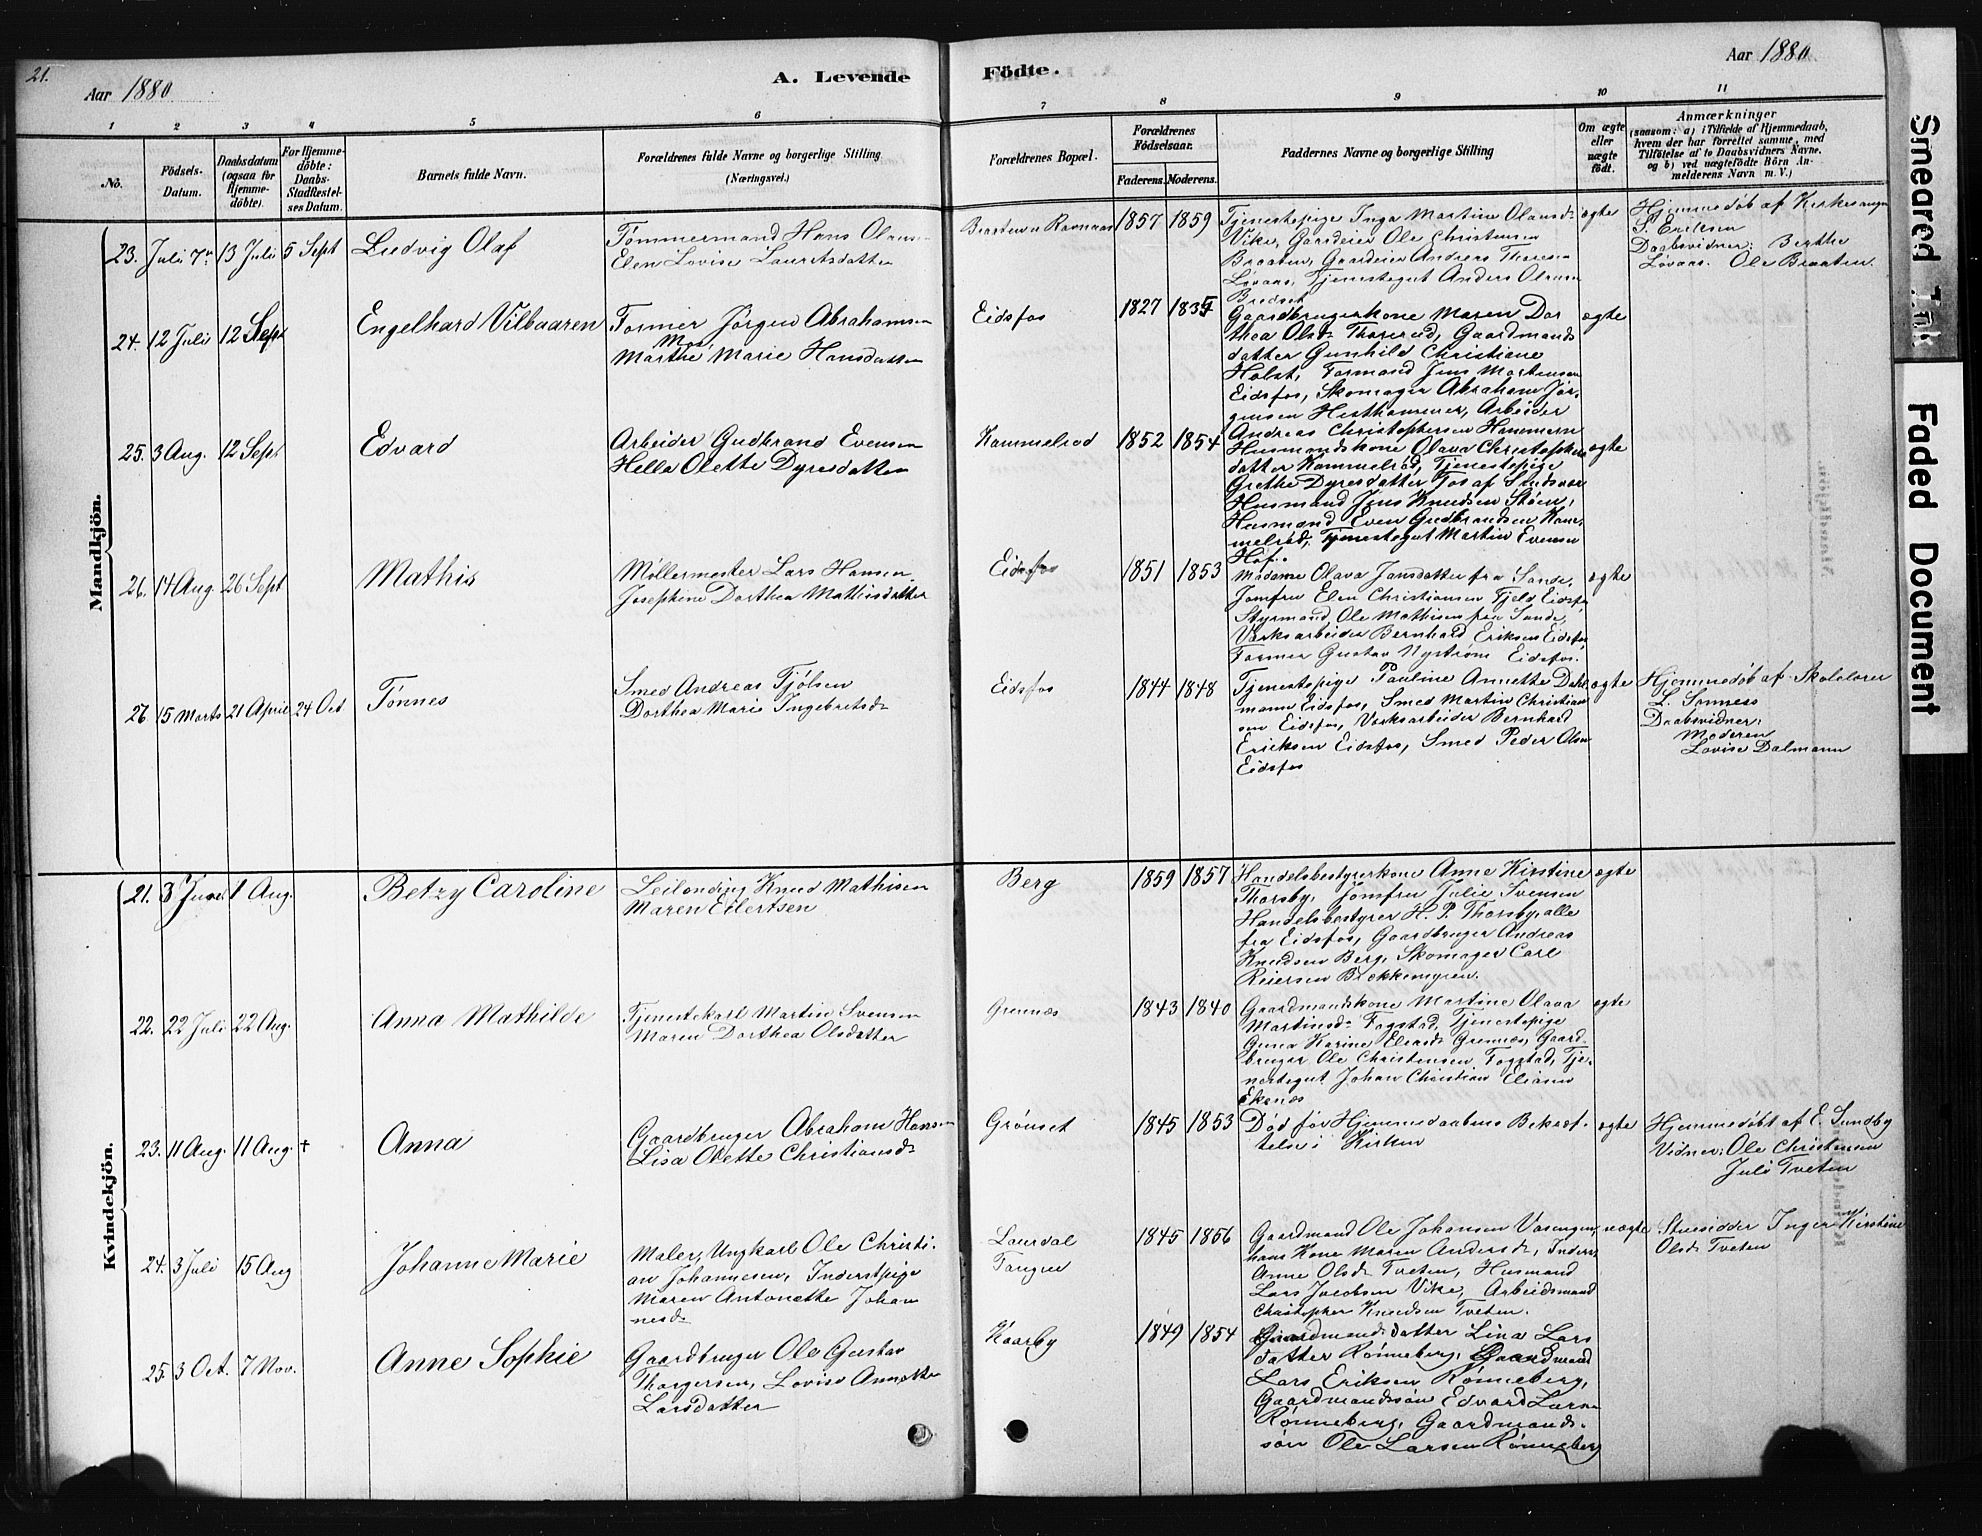 21.
Aar 1880
A. Levende
Födte.
Aar 1880
1 2 3 4 5 6 7 8 9 10 11
No.
Födsels-
Datum.
Daabsdatum
(ogsaa for
Hjemme-
döbte).
For Hjemme-
döbte:
Daabs-
Stadfæstel-
ses Datum.
Barnets fulde Navn.
Forældrenes fulde Navne og borgerlige Stilling
(Næringsvei.)
Forældrenes Bopæl.
Forældrenes
Födselsaar.
Faderens. Moderens.
Faddernes Navne og borgerlige Stilling
Om ægte
eller
uægte
født.
Anmærkninger
(saasom: a) i Tilfælde af Hjemmedaab,
hvem der har forrettet samme, med
Tilföielse af to Daabsvidners Navne.
og b) ved uægtefödte Börn An-
melderens Navn m. V.)
Mandkjön.
23. Juli 7de 13 Juli 5 Sept
Ludvig Olaf
Tømmermand Hans Olausen
Elen Lovise Lauritsdatter
1857 1859
Tjenestepige Inga Martine Olausd
Vike, Gaardeier Ole Christensen
Braaten, Gaardeier Andreas Thoresen
Løvaas, Tjenestegut Anders Olausen
Bredset
ægte
Hjemmedøb af Kirkesanger
P. Eriksen
Daabsvidner: Berthe
Løvaas. Ole Braaten.
24. 12 Juli 12 Sept
Engelhard Vilbaaren
Former Jørgen Abrahamsen
Marthe Marie Hansdatter
Eidsfos
1827 1835
Gaardbrugerkone Maren Dor
thea Olsd Thorerud, Gaardmands
datter Gunhild Christiane
Holst, Formand Jens Mortensen
Eidsfos, Skomager Abraham Jør-
gensen Hesthammer, Arbeider
Andreas Christophersen Hammern
ægte
25. 3 Aug. 12 Sept
Edvard
Arbeider Gudbrand Evensen
Hella Olette Dyresdatter
Kammelrød
1852 1854
Husmandskone Olava Christophers
datter Kammelrød, Tjenestepige
Grethe Dyresdatter
Husmand Jens Knudsen Støen,
Husmand Even Gudbrandsen Kam
melrød, Tjenestegut Martin Evensen
Hof.
ægte
26. 14 Aug. 26 Sept
Mathis
Møllermester Lars Hansen
Josephine Dorthea Mathisdatter
Eidsfos
1851 1853
Madame Olava Jansdatter fra Sande,
Jomfru Elen Christiansen Fjeld Eidsfos
Styrmand Ole Mathisen fra Sande,
Værksarbeider Bernhard Eriksen Eidsfos
Former Gustav Nystrøm Eidsfos.
ægte
27 15 Marts 21 April 24 Oct
Tønnes
Smed Andreas Tjølsen
Dorthea Marie Ingebretsd
Eidsfos
1844 1848
Tjenestepige Pauline Annette Dahl
mann Eidsfos, Smed Martin Christian
sen Eidsfos, Værksarbeider Bernhard
Eriksen Eidsfos, Smed Peder Olsen
Eidsfos
ægte
Hjemmedøb af Skolelærer
Daabsvidner:
Moderen
Lovise Dalmann
Kvindekjön.
21. 3 Juni 1 Aug.
Betzy Caroline
Leilending Knud Mathisen
Maren Eilertsen
Berg
1859 1857
Handelsbestyrerkone Anne Kirstine
Thorsby, Jomfru Julie Svensen
Handelsbestyrer H. P. Thorsby, alle
fra Eidsfos, Gaardbruger Andreas
Knudsen Berg, Skomager Carl
Reiersen Bækkemyren.
ægte
22. 22 Juli 22 Aug.
Anna Mathilde
Tjenestekarl Martin Svensen
Maren Dorthea Olsdatter
Grennes
1843 1840
Gaardmandskone Martine Olava
Martinsd Fogstad, Tjenestepige
Karine Eliasd Grennes, Gaard-
bruger Ole Christensen Fogstad, Tje-
nestegut Johan Christian Eliasen
Ekenæs
ægte
23. 11 Aug. 11 Aug. +
Anna
Gaardbruger Abraham Hansen
Lisa Olette Christiansd
Grønset
1845 1853
Død før Hjemmedaabens Bekræf-
telse i Kirken
ægte
Hjemmedøbt af E. Sundby
Vidner: Ole Christensen
Juli Tveten
24. 3 Juli 15 Aug
Johanne Marie
Maler, Ungkarl Ole Christi-
an Johannesen, Inderstpige
Maren Antonette Johan
nesd
Laurdal
Tangen
1845 1856
Gaardmand Ole Johansen Vasengen,
hans Kone Maren Andersd,
Anne Olsd Tveten, Husmand
Lars Jacobsen Vike, Arbeidsmand
Christopher Knudsen Tveten.
uægte
Inger Kirstine
Olsd Tveten
25. 3 Oct. 7 Nov.
Anne Sophie
Gaardbruger Ole Gustav
Thorgersen, Lovise Annette
Larsdatter
Kaarby
1849 1854
Gaardmandsdatter Lina Lars
datter Rønneberg, Gaardmand
Lars Eriksen Rønneberg,
Gaardmandssøn Edvard Larsen
Rønneberg, Gaardmands-
søn Ole Larsen Rønneberg
Smeared Ink
Faded Document